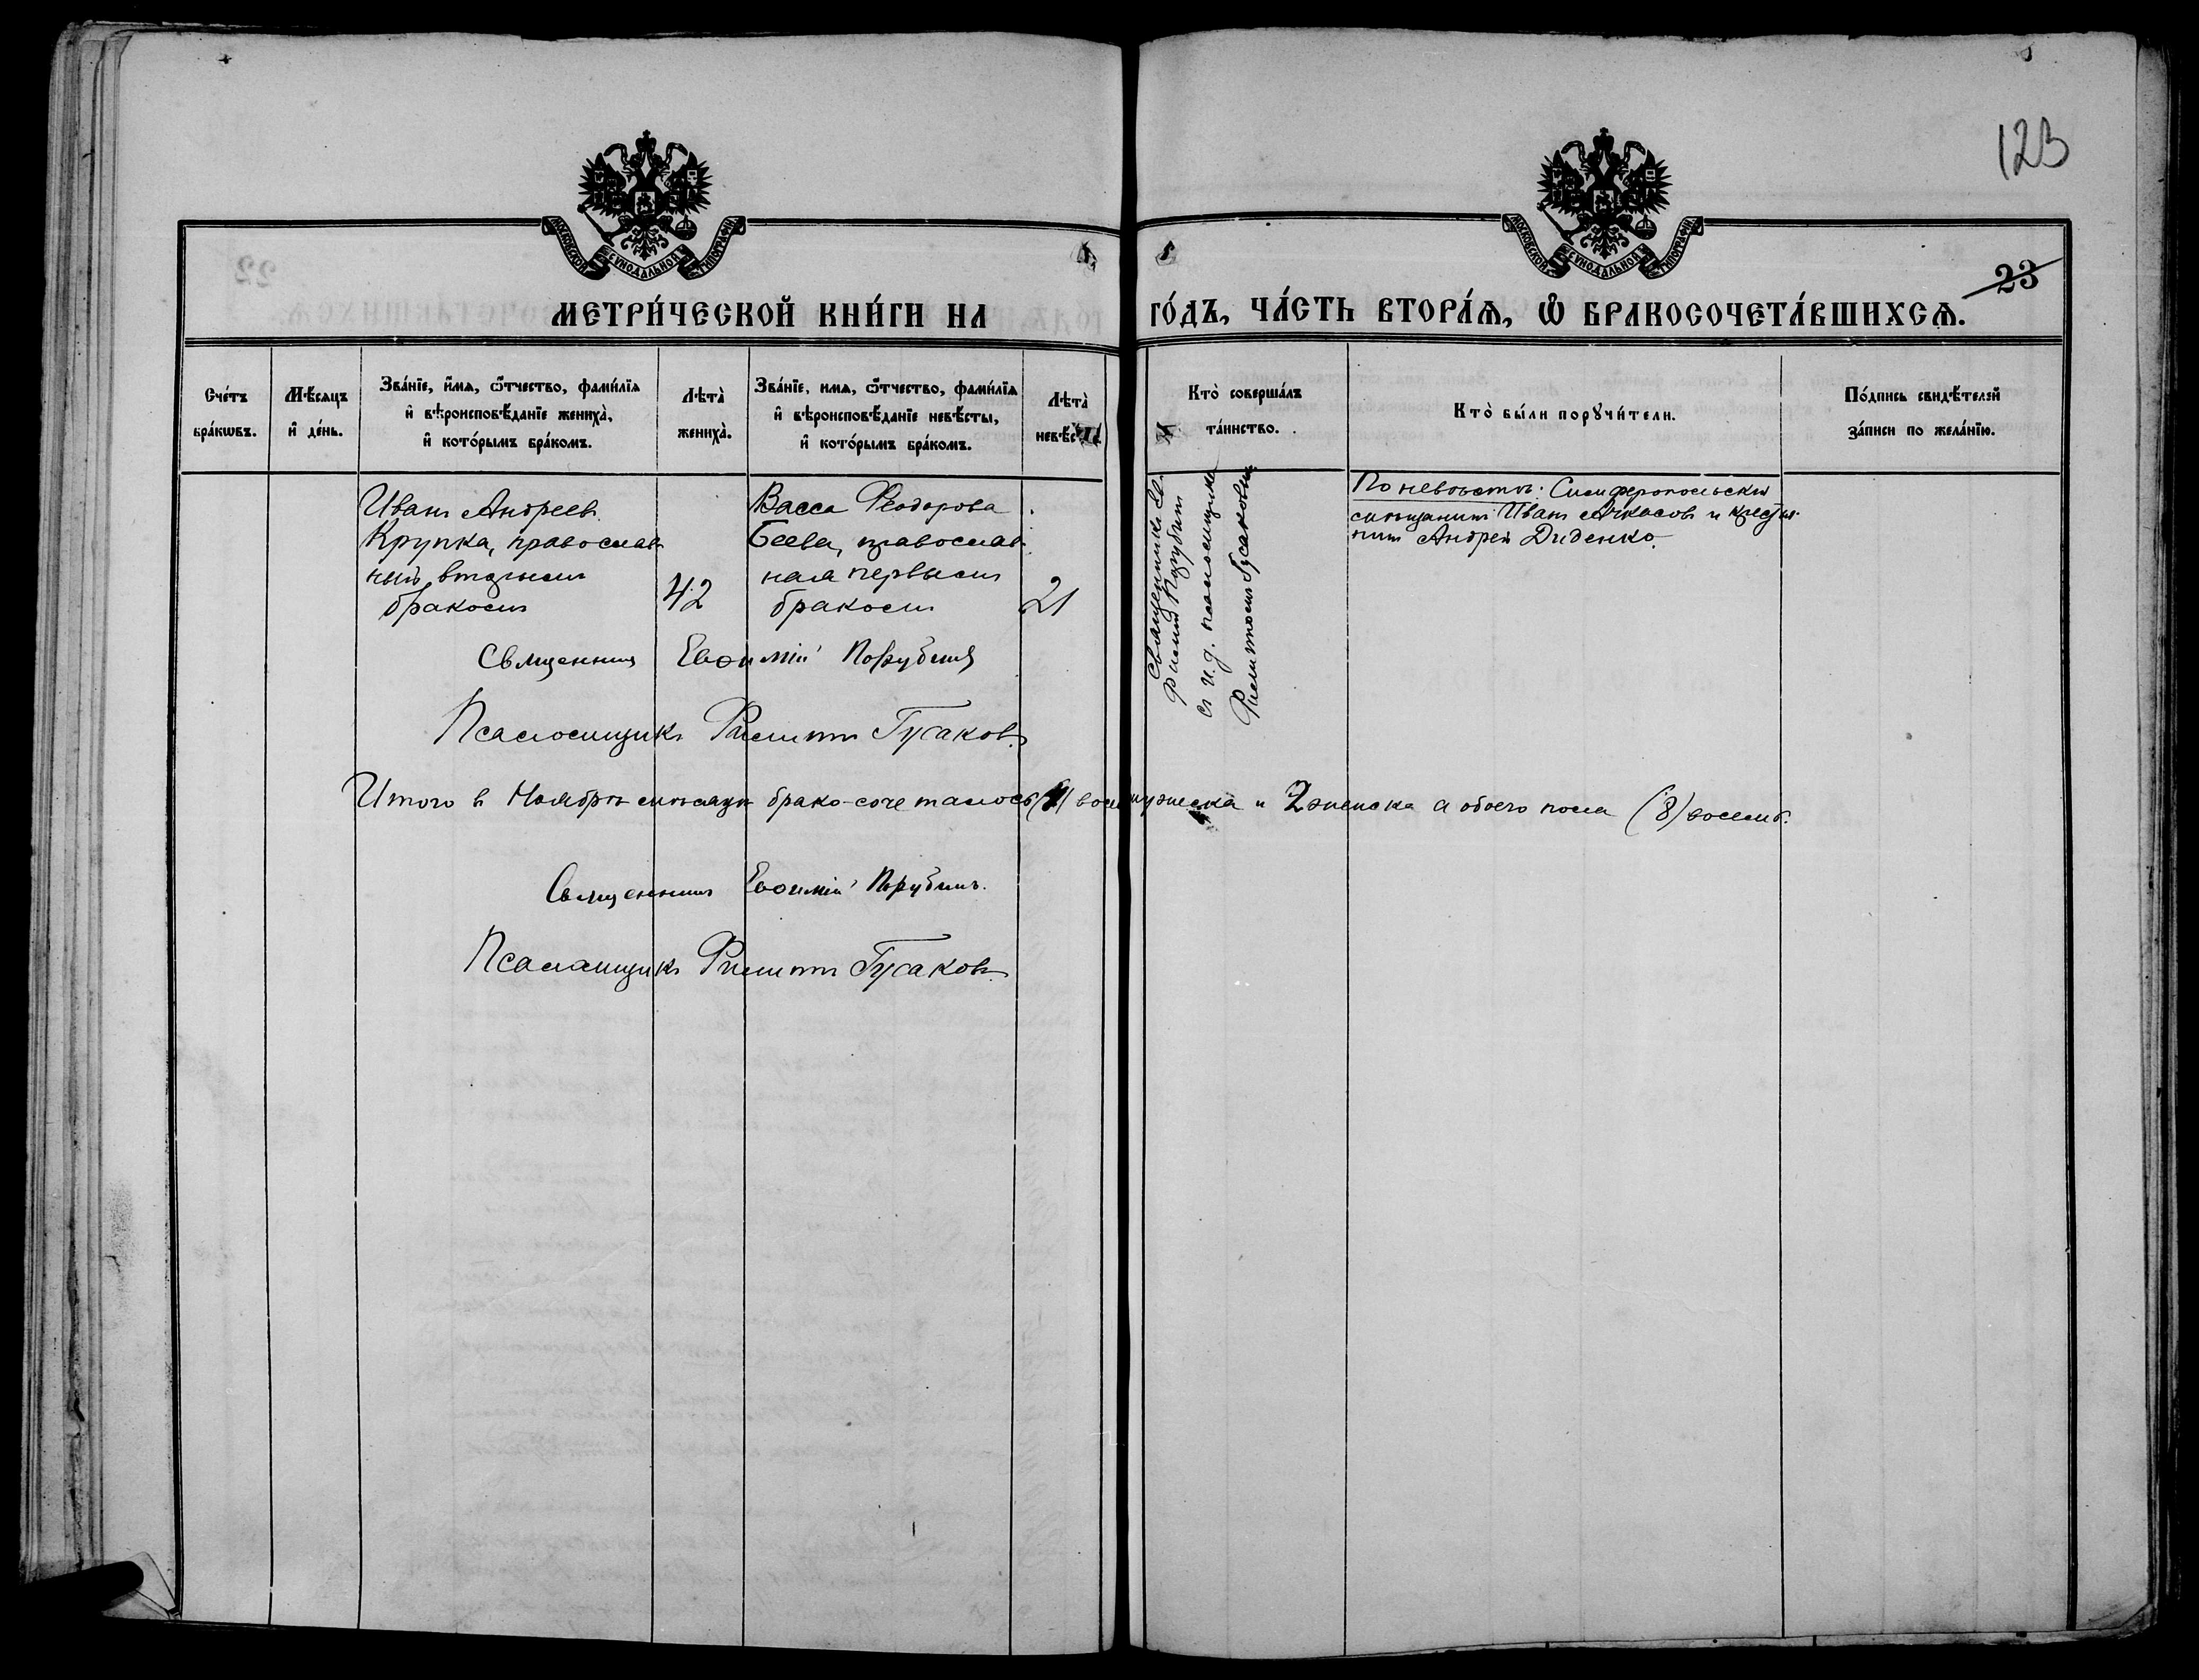 123
23
МОСКОВСКОЙ СѴНОДАЛЬНОЙ ТИПОГРАФІИ
МОСКОВСКОЙ СѴНОДАЛЬНОЙ ТИПОГРАФІИ
МЕТРИ́ЧЕСКОЙ КНИ́ГИ НА
ГО́ДЪ, ЧА́СТЬ ВТОРА́Ѧ, Ѽ БРАКОСОЧЕТА́ВШИХСѦ.
Сче́тъ бра́кѡвъ.
Мѣ́сяцъ и҆ де́нь.
Зва́нїе, и҆́мѧ, ѻ҆́тчество, фами́лїѧ
и҆ вѣроисповѣ́данїе жениха̀,
и҆ кото́рымъ бра́комъ.
Лѣта̀ жениха̀.
Зва́нїе, имѧ, ѻ҆́тчество, фами́лїѧ
и҆ вѣроисповѣ́данїе невѣ́сты,
и҆ кото́рымъ бра́комъ.
Лѣта̀
Кто̀ соверша́лъ
та́инство.
Кто̀ бы́ли порꙋчи́тели.
По́дпись свидѣ́телей
за́писи по жела́нїю.
Иванъ Андреев
Крупка, православ
ный, вторымъ
бракомъ
42
Васса Ѳеодорова
Беева, православ
ная первымъ
бракомъ
21
Священникъ Ев
фимій Порубинъ
съ и. д. псаломщика
Филиппомъ Гусаковымъ
По невѣстѣ: Симферопольскій
мѣщанинъ Иванъ Ачкасовъ и крестья
нинъ Андрей Диденко.
Священникъ Евѳимій Порубинъ
Псаломщикъ Филиппъ Гусаковъ.
Итого в Ноябрѣ мѣсяцѣ брако-сочеталось мужеска и женска а обоего пола (8) восемь.
Священникъ Евѳимій Порубинъ.
Псаломщикъ Филиппъ Гусаковъ.